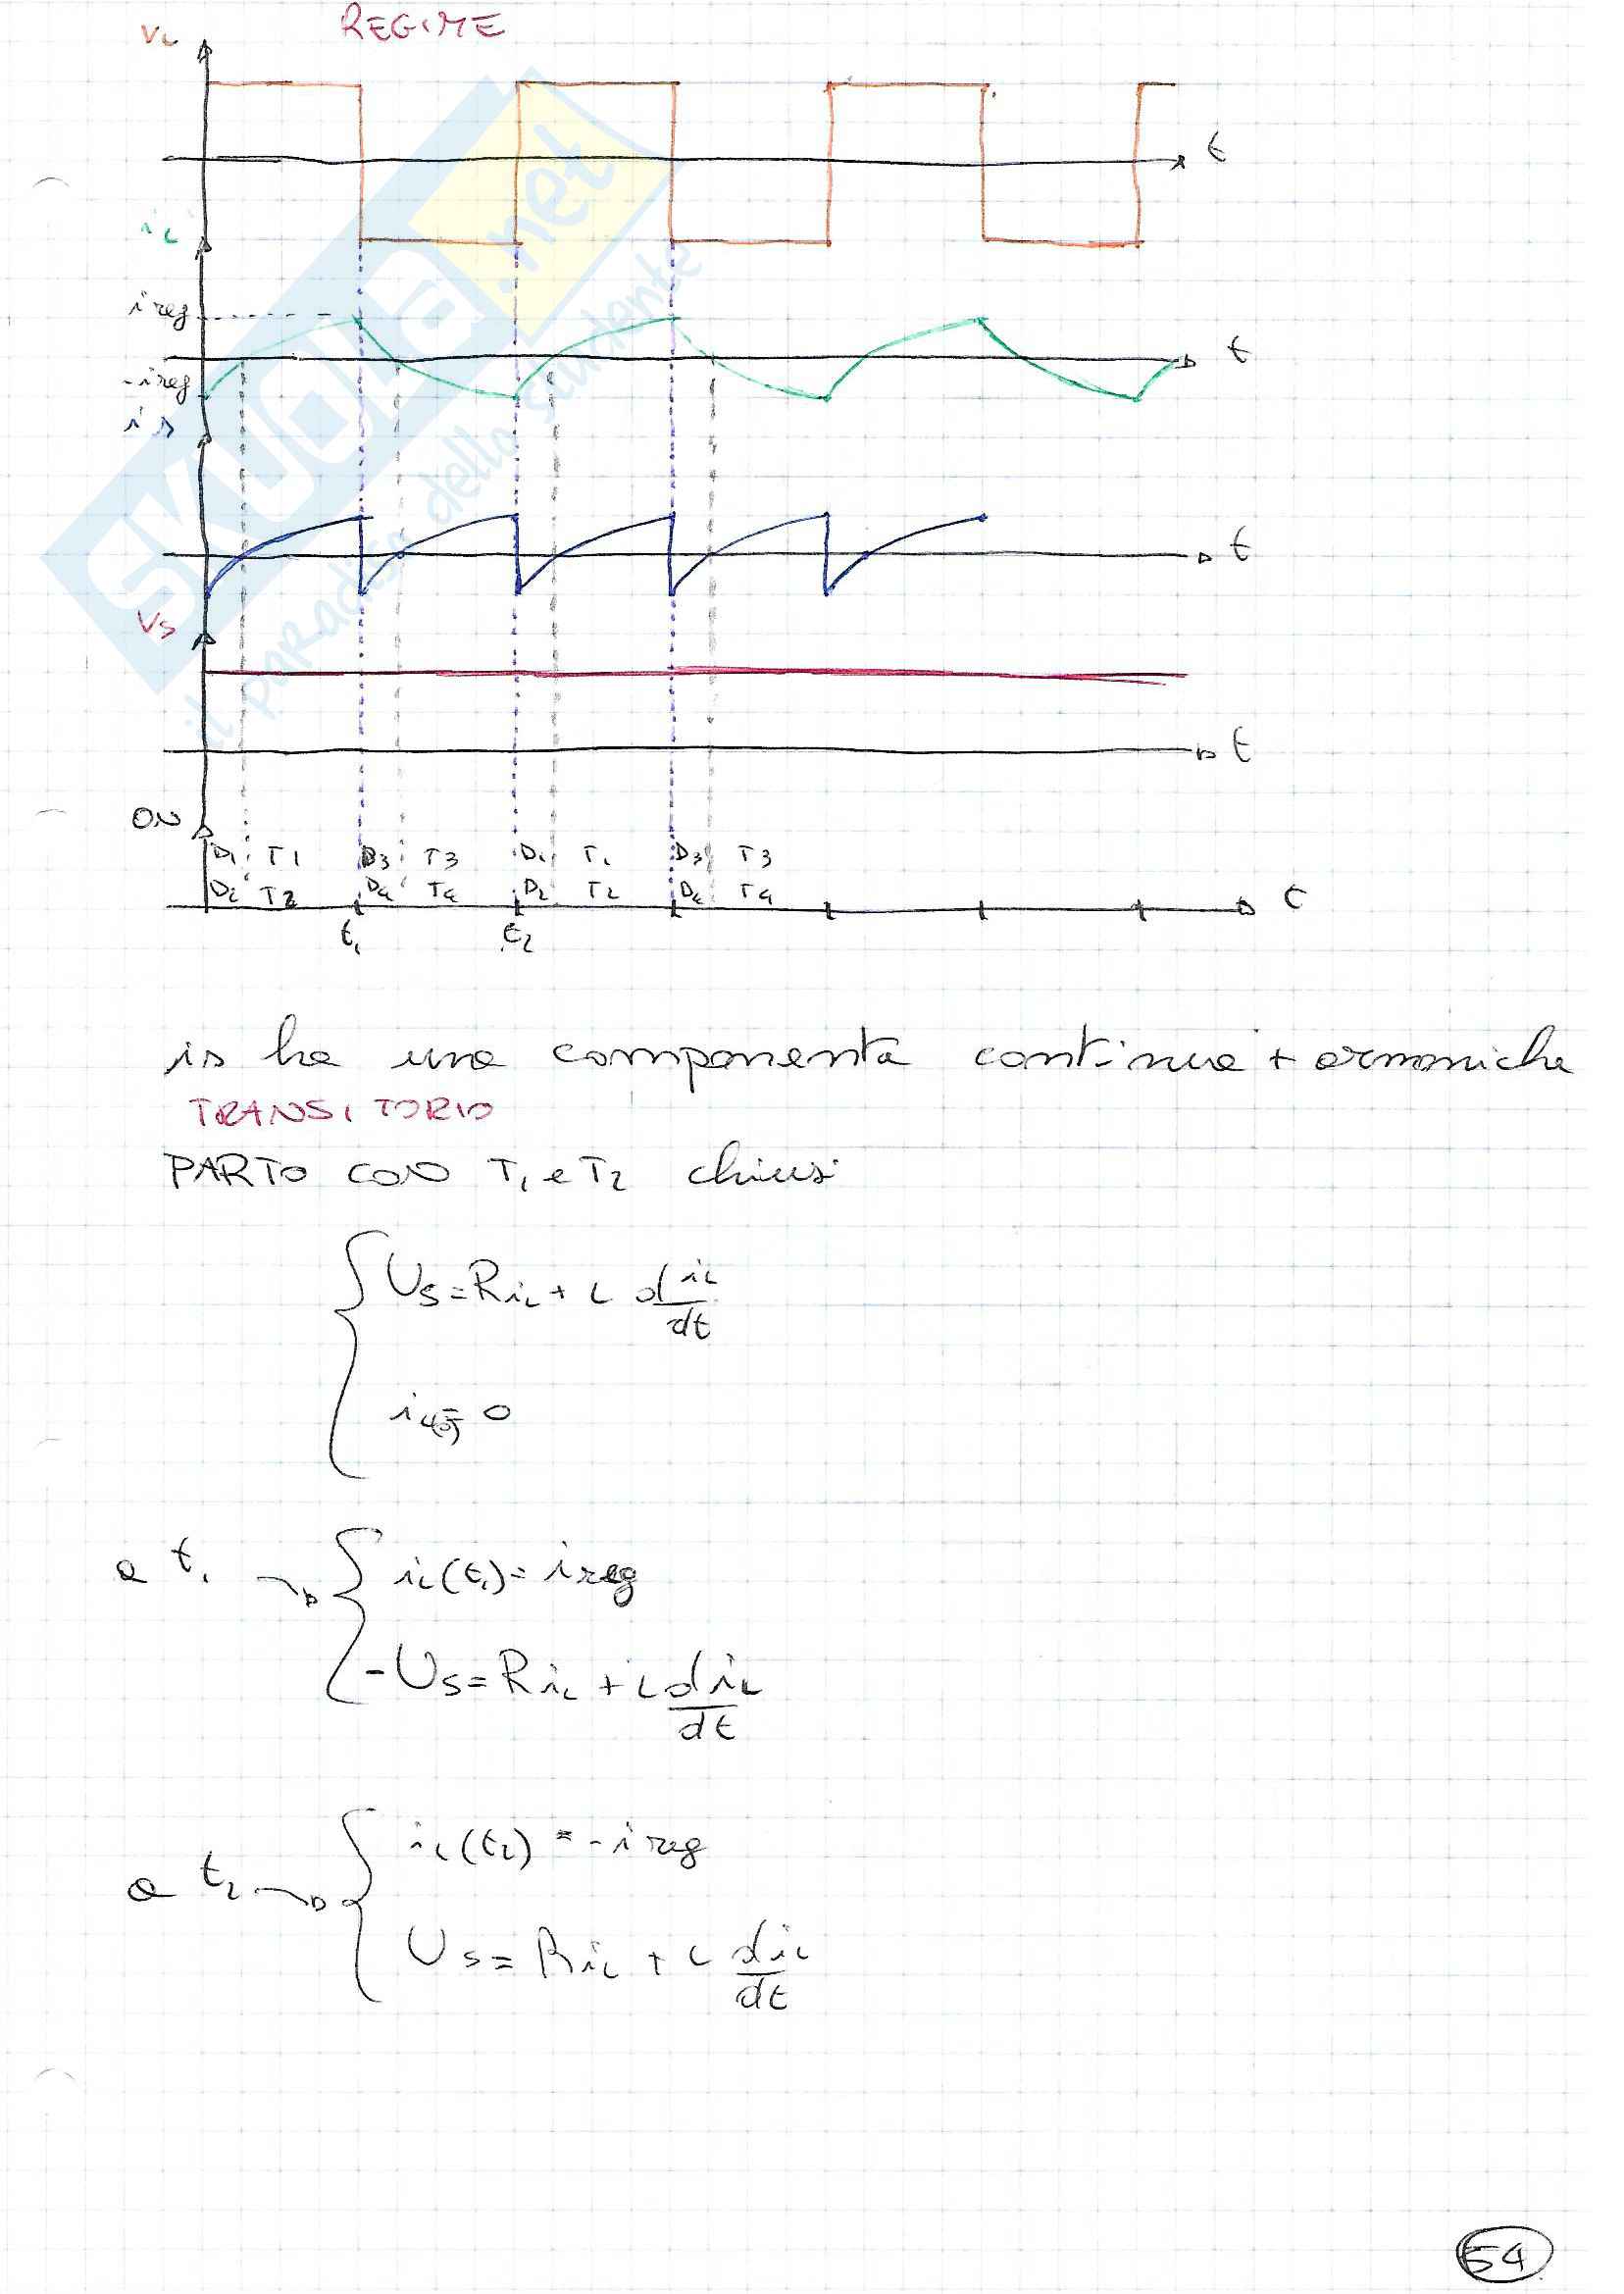 REGIME
VL
t
iL
ireg
t
-ireg
is
t
VS
t
ON
D1 T1 D3 T3 D1 T1 D3 T3
D2 T2 D4 T4 D2 T2 D4 T4
t
t1 t2
is ha una componenta continua + armoniche
TRANSITORIO
PARTO CON T1 e T2 chiusi
US = R iL + L d iL
dt
iL(0) = 0
a t1 iL(t1) = ireg
-US = R iL + L d iL
dt
a t2 iL(t2) = -ireg
US = R iL + L d iL
dt
54
SKUOLA.net
il paradiso dello studente